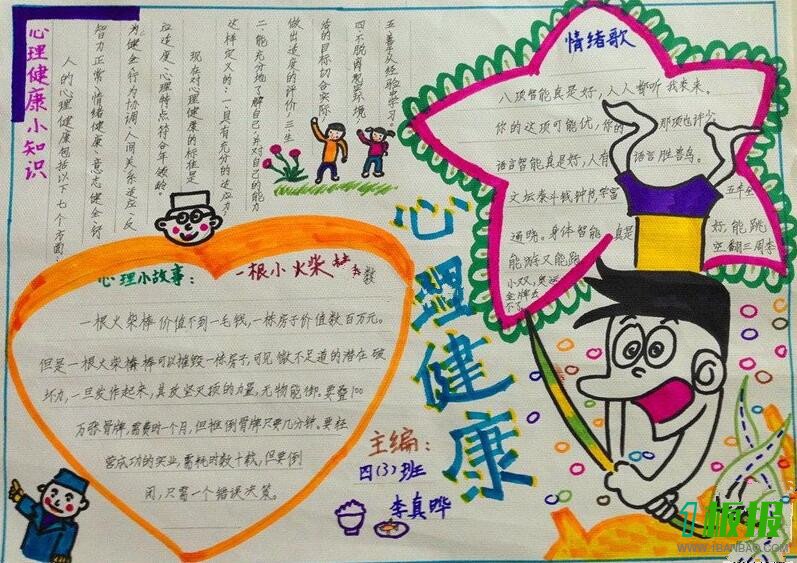 心理健康小知识
人的心理健康包括以下七个方面：
智力正常、情绪健康、意志健全、行
为健全、行为协调、人间关系适应、反
应适度、心理特点符合年龄。
现在对心理健康的标准是
这样定义的：一、具有充分的适应力。
二、能充分地了解自己，并对自己的能力
做出适度的评价；三、生
活的目标切合实际；
四、不脱离现实环境
五、善于从经验中学习。
情绪歌
八项智能真是好，人人都听我来来。
你的这项可能优，你的 那项也许少
语言智能真是好，人有 语言胜善鸟。
文坛泰斗钱钟书，学富 五车全
通晓。身体智能 真是 好，能跳
能游又能跑 空翻三周李
小双，奥运
金牌去
不了
心理小故事：
一根小火柴
一根火柴棒价值不到一毛钱，一栋房子价值数百万元。
但是一根火柴棒棒可以摧毁一栋房子，可见微不足道的潜在破
坏力，一旦发作起来，其攻坚灭顶的力量，无物能御。要叠100
万张骨牌，需费时一个月，但推倒骨牌只要几分钟。要经
营成功的实业，需耗时数十载，但要倒
闭，只需一个错误决策。
心理健康
主编：
四(3)班
李真晔
1板报
WWW.1BANBAO.COM